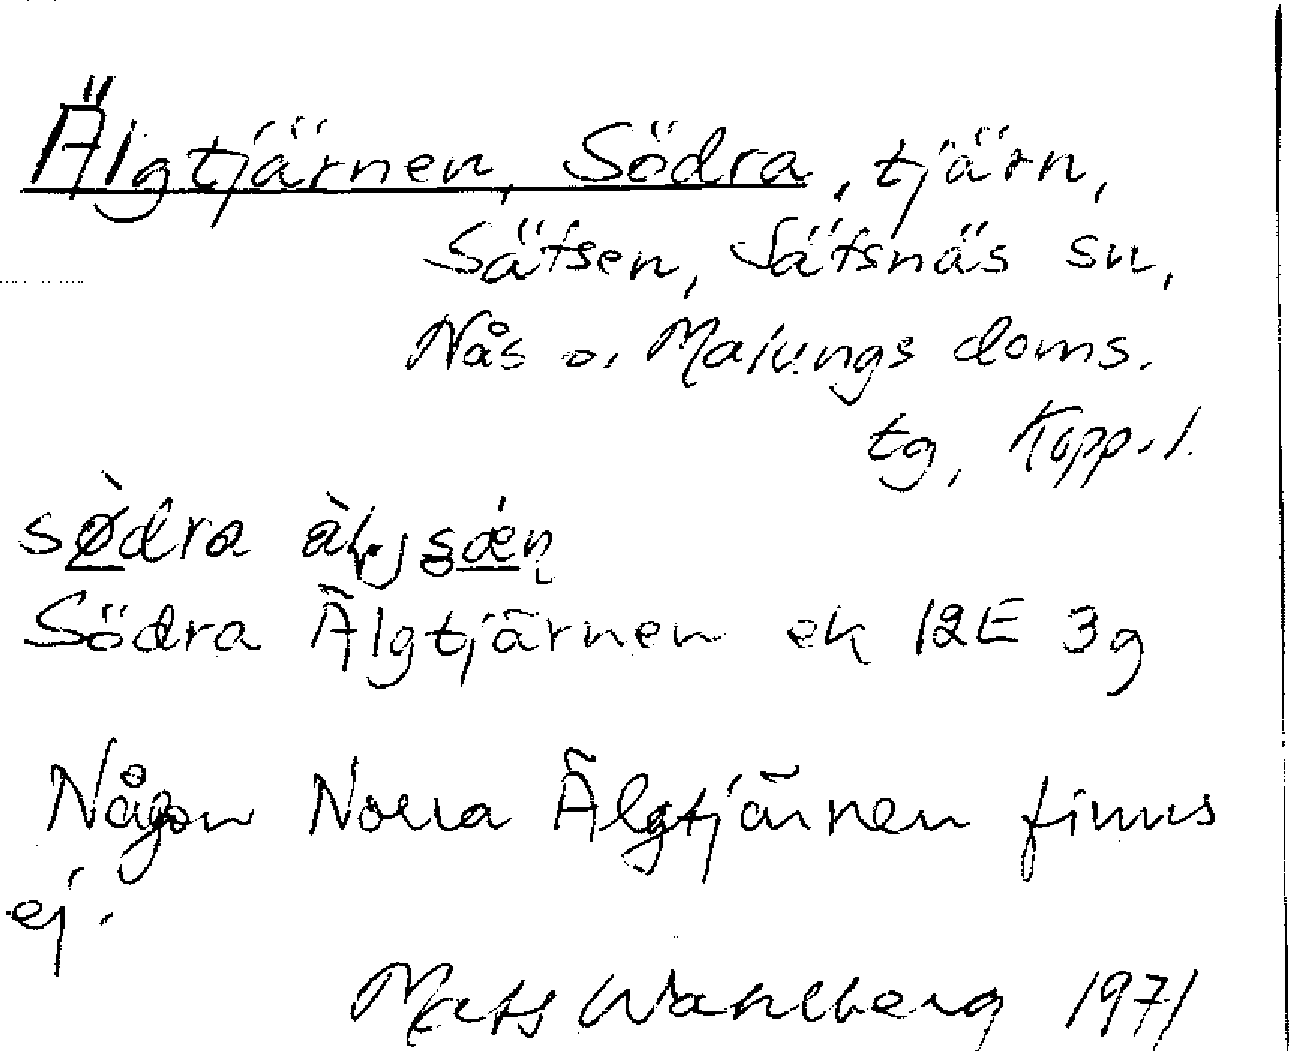 Älgtjärnen, Södra, tjärn,
Sätsen, Sätsnäs sn,
Nås o. Malungs doms.
tg, Kopp. l.
södra
Södra Älgtjärnen ek 12E 3g
Någon Norra Älgtjärnen finns
ej.
Mats Wahlberg 1971